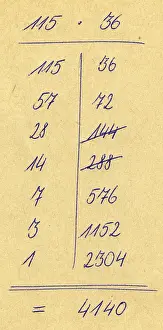 115 · 36
115 36
57 72
28 144
14 288
7 576
3 1152
1 2304
= 4140